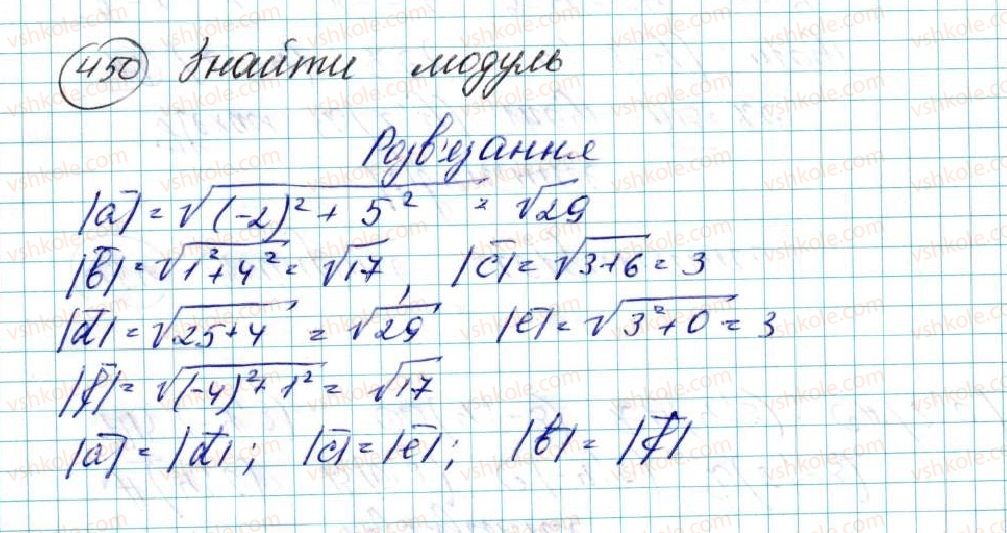 450 Знайти модуль
Розв'язання
|a̅| = √((-2)² + 5²) = √29
|b̅| = √(1² + 4²) = √17, |c̅| = √(3+6) = 3
|d̅| = √(25+4) = √29 |e̅| = √(3²+0) = 3
|f̅| = √((-4)² + 1²) = √17
|a̅| = |d̅|; |c̅| = |e̅|; |b̅| = |f̅|